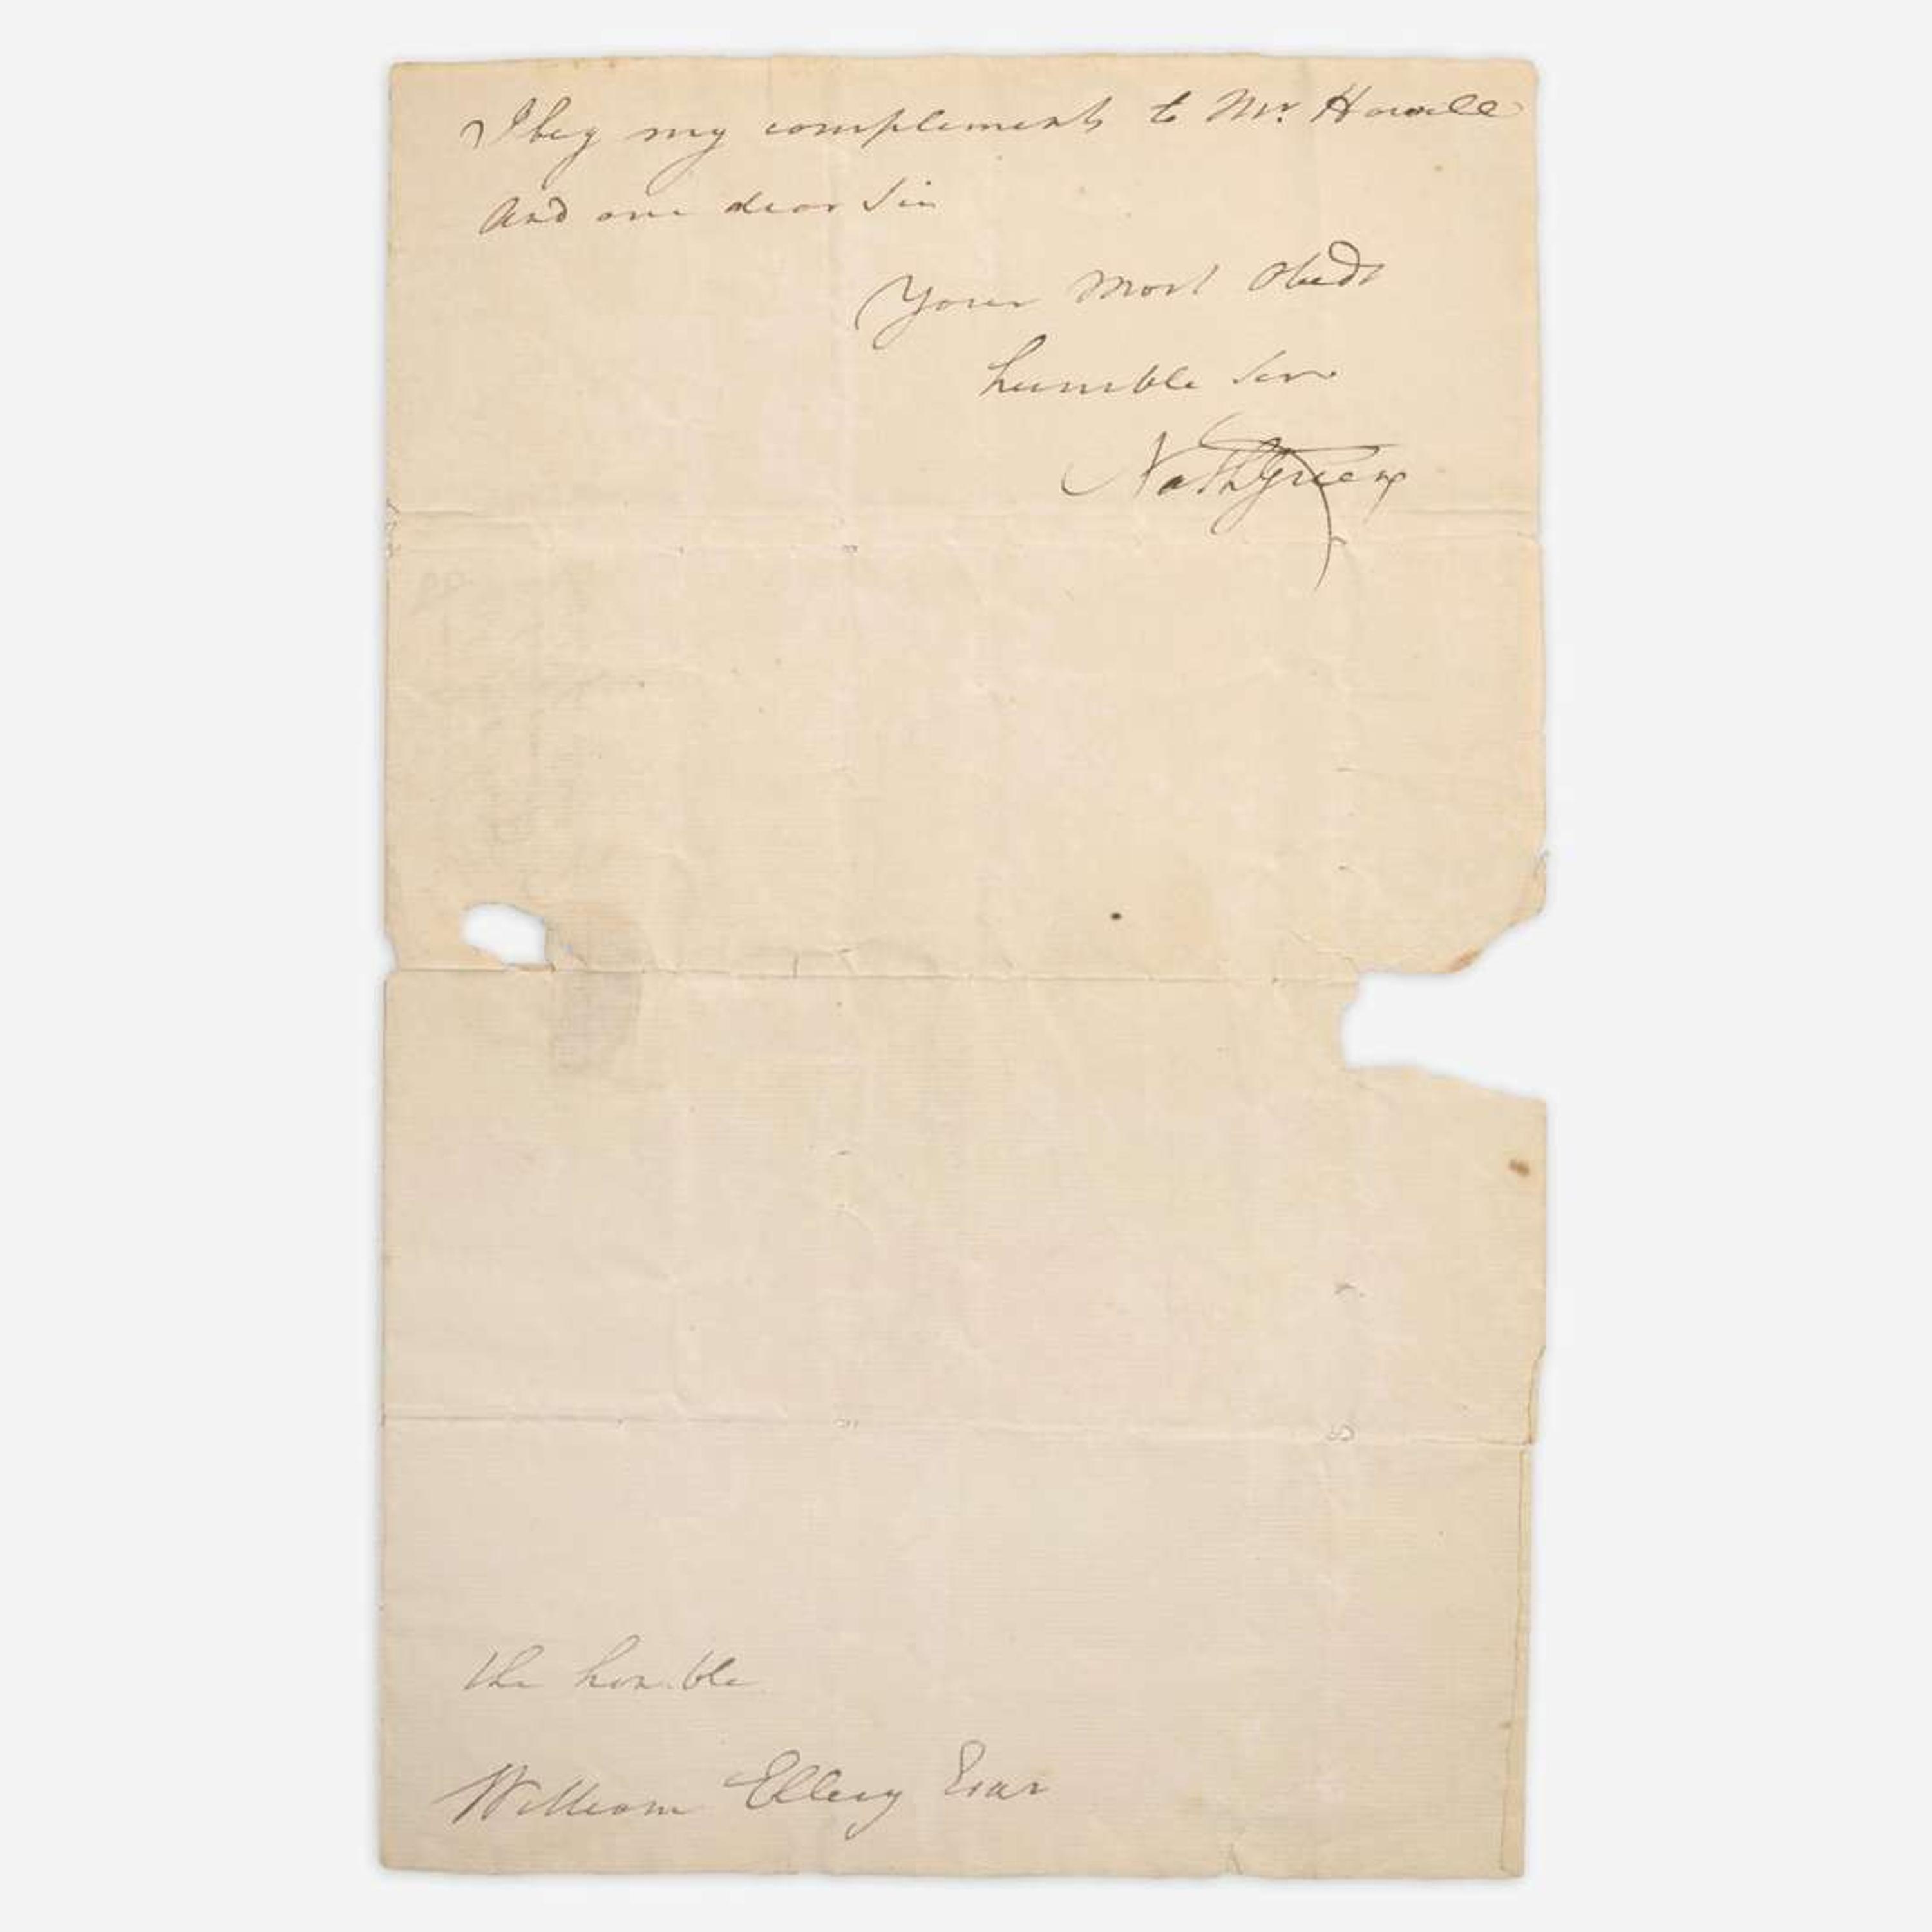 I beg my complements to Mr. Howell
And am dear Sir
Your Most Obedt
humble Ser
Nath Greene
the honble
William Ellery Esqr